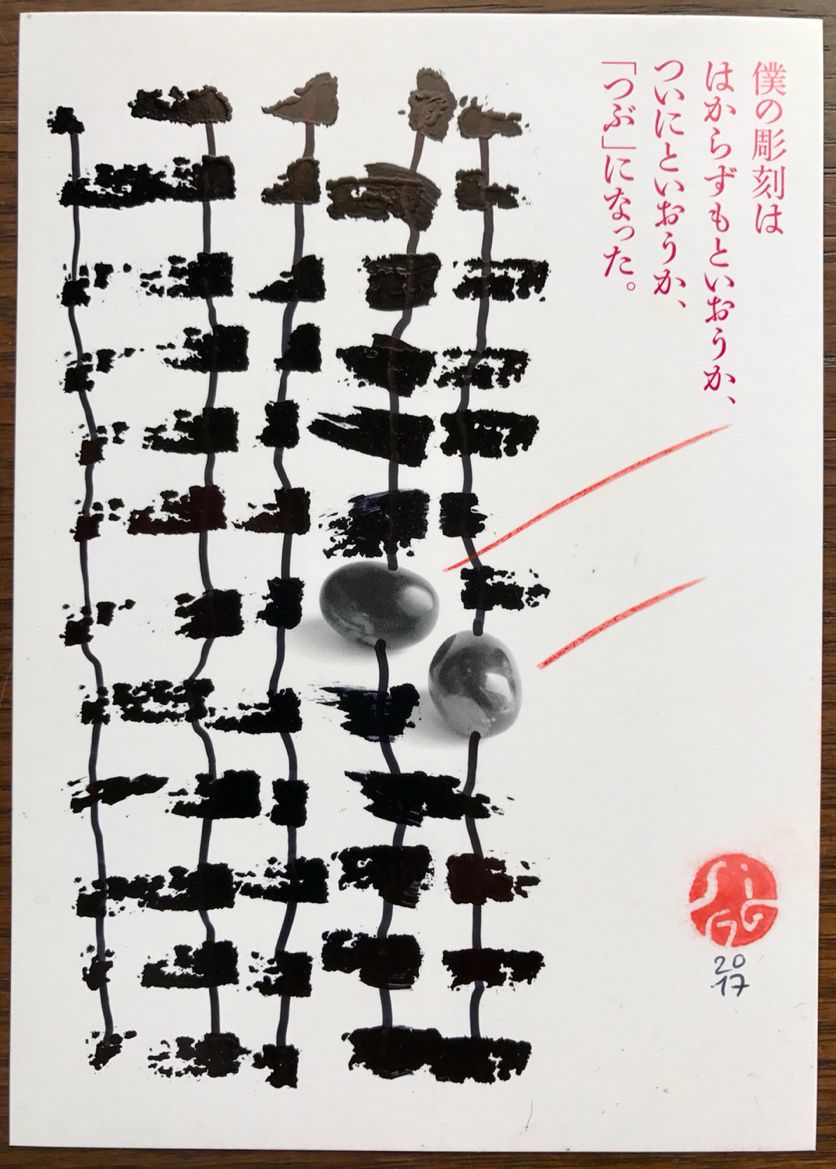 僕の彫刻は
はからずもといおうか、
ついにといおうか、
「つぶ」になった。
SiGG
20
17